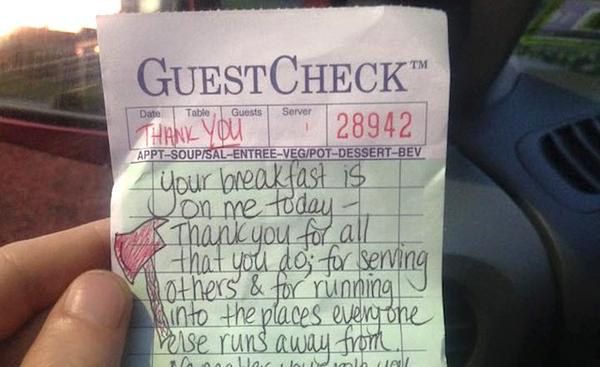 GUESTCHECK™
Date Table Guests Server
THANK YOU 28942
APPT-SOUP/SAL-ENTREE-VEG/POT-DESSERT-BEV
your breakfast is
on me today -
Thank you for all
that you do; for serving
others & for running
into the places everyone
else runs away from.